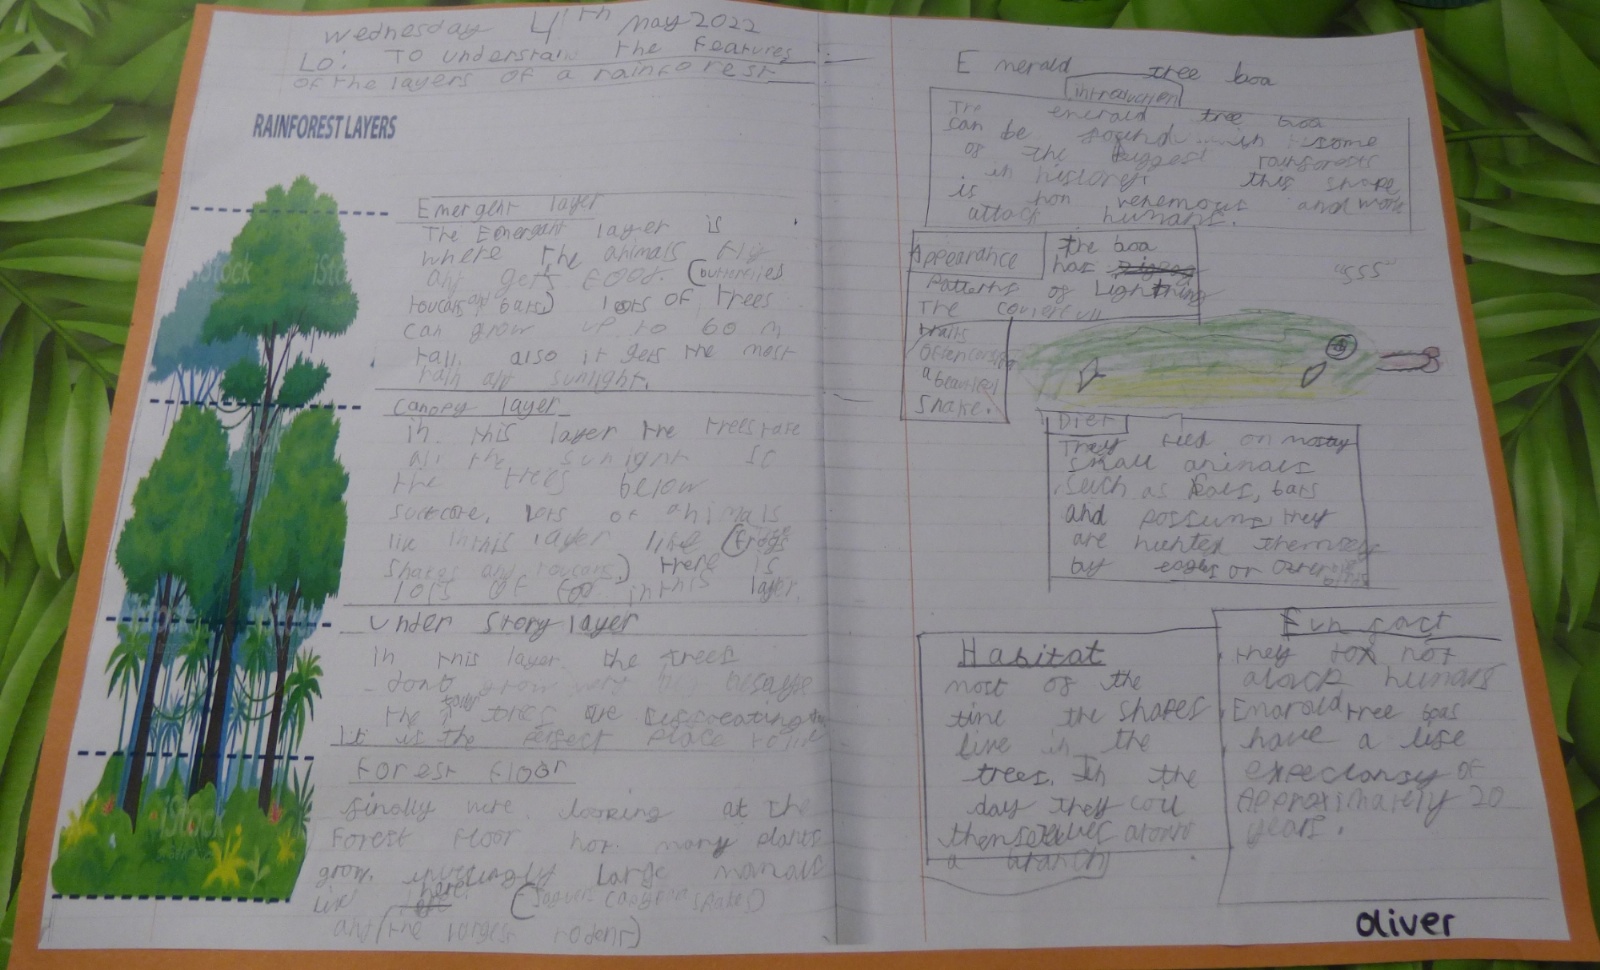 Wednesday 4th May 2022
Lo: To understain the features
of the layers of a rainforest
RAINFOREST LAYERS
Emergent layer
The Emergant layer is
where the animals fly
and gets food. (butterflies
toucans and bats) lots of trees
can grow up to 60 m
tall. also it gets the most
rain and sunlight.
Canopy layer
in this layer the trees take
all the sunlight so
the trees below
lots of animals
in this layer like (frogs
snakes and toucans) there is
lots of in this layer.
Under Story layer
in this layer the trees
dont grow very because
the trees are
It is the perfect place to
Forest floor
finally were looking at the
Forest floor not many plants
grow. large mamals
live here.
(the largest rodent)
Emerald tree boa
introduction
The emerald tree boa
can be found in some
of the biggest rainforests
in history. this snake
is non venemous and wont
attack humans.
Appearance
the boa
has
Patterns of Lightning
The
a beautiful
snake.
"sss"
Diet
They feed on mostly
small animals
such as bats
and possums they
are hunted themself
by eagles or other
Habitat
most of the
time the snakes
live in the
trees. In the
day they coil
themselves around
a branch
Fun fact
they not
atack humans
Emarald tree boas
have a life
expectansy of
Approximately 20
years.
oliver
iStock
iStock
iStock